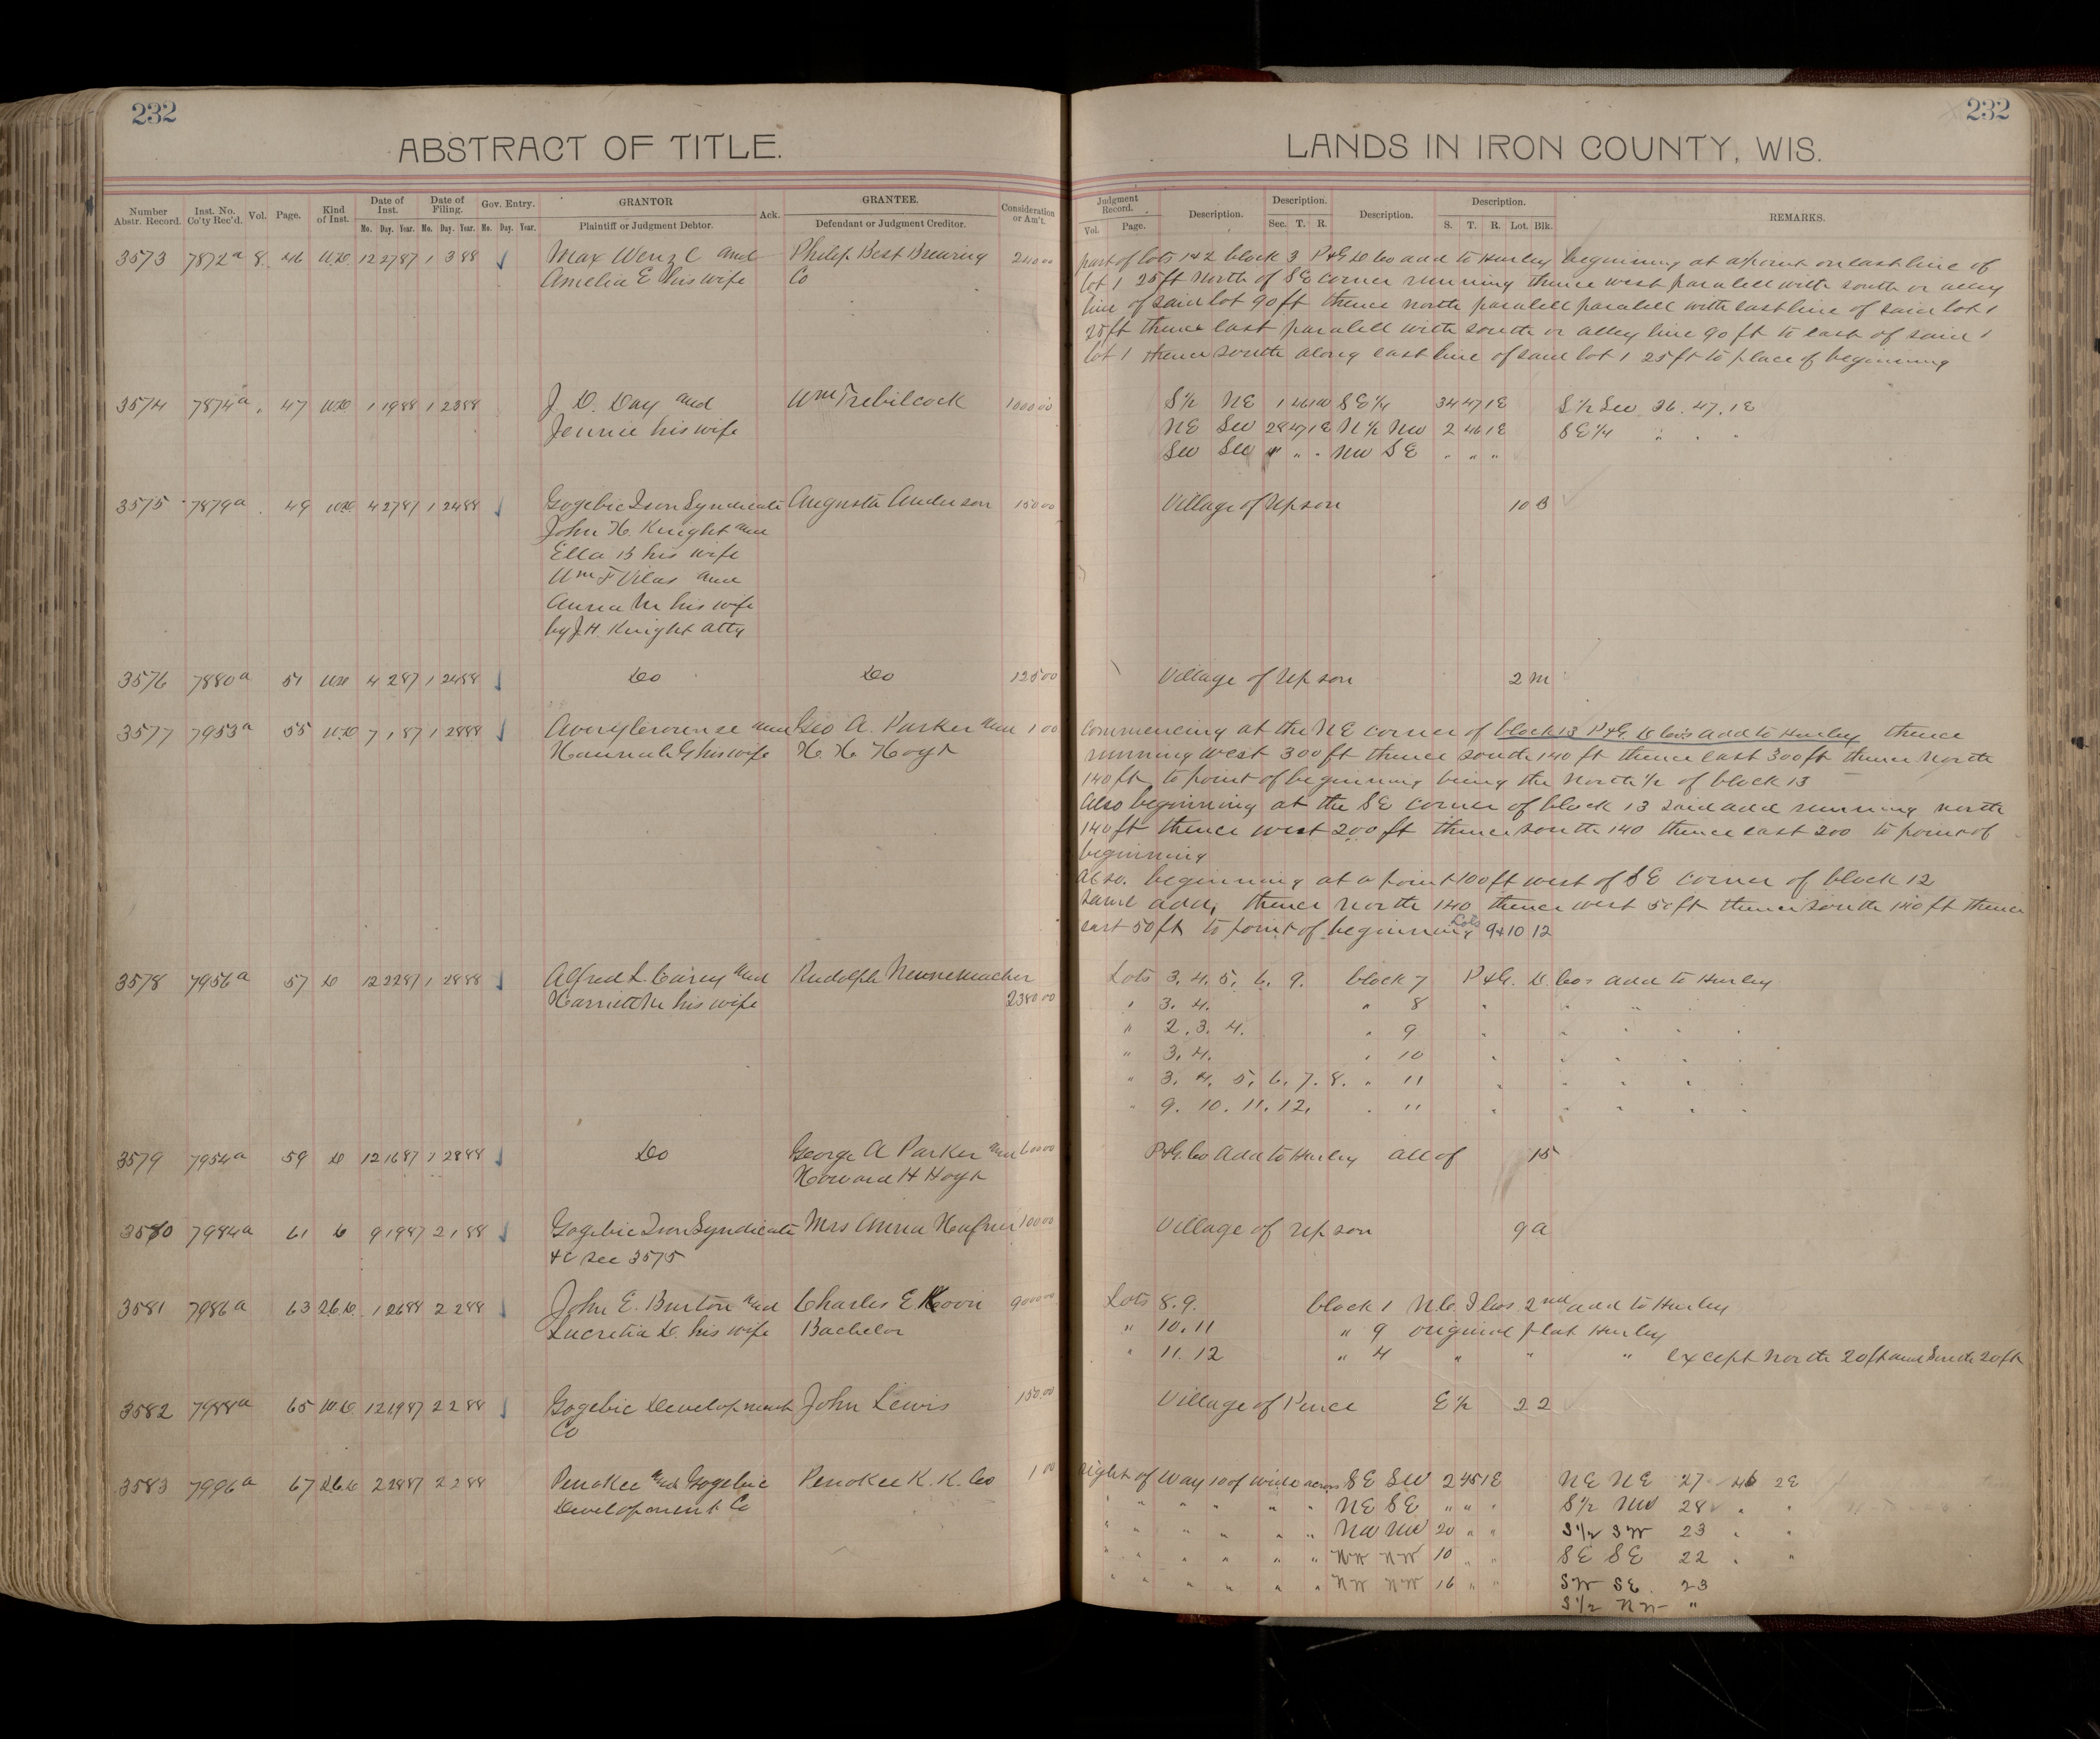 232
ABSTRACT OF TITLE.
Number Abstr. Record. Inst. No. Co'ty Rec'd. Vol. Page. Kind of Inst. Date of Inst. Date of Filing. Gov. Entry. GRANTOR Ack. GRANTEE. Consideration or Am't.
Mo. Day. Year. Mo. Day. Year. Mo. Day. Year. Plaintiff or Judgment Debtor. Defendant or Judgment Creditor.
3573 7872a 8 46 WD 12 27 87 1 3 88 Max Wenzl and Philip Best Brewing 240 00
Amelia E his wife Co
3574 7874a " 47 WD 1 19 88 1 23 88 J. D. Day and Wm Trebilcock 1000 00
Jennie his wife
3575 7879a 49 WD 4 27 87 1 24 88 Gogebic Iron Syndicate Augusta Anderson 150 00
John H. Knight and
Ella B his wife
Wm F Vilas and
Anna M his wife
by J. H. Knight atty
3576 7880a 51 WD 4 2 87 1 24 88 Do Do 125 00
3577 7953a 55 WD 7 1 87 1 28 88 and Geo A. Parker and 1 00
Hannah G his wife H. H. Hoyt
3578 7956a 57 D 12 22 87 1 28 88 Alfred L. Carey and Rudolph Nunnemacher
Harriett M his wife 2380.00
3579 7954a 59 D 12 16 87 1 28 88 Do George A Parker and 600 00
Howard H Hoyt
3580 7984a 61 9 19 87 2 1 88 Gogebic Iron Syndicate Mrs Anna 100 00
&c see 3575
3581 7986a 63 1 26 88 2 2 88 John E. Burton and Charles E Koon 9000 00
Lucretia D. his wife Bachelor
3582 7988a 65 WD 12 19 87 2 2 88 Gogebic Development John Lewis 150.00
Co
3583 7996a 67 2 28 87 2 2 88 Penokee and Gogebic Penokee R. R. Co 1 00
Development Co
232
LANDS IN IRON COUNTY, WIS.
Judgment Record. Description. Description. Description. Description. REMARKS.
Vol. Page. Sec. T. R. S. T. R. Lot. Blk.
part of lots 1 & 2 block 3 P & G D Cos add to Hurley beginning at a point on east line of
lot 1 25 ft north of SE corner running thence west paralell with south or alley
line of said lot 90 ft thence north paralell paralell with east line of said lot 1
25 ft thence east paralell with south or alley line 90 ft to east of said 1
lot 1 thence south along east line of said lot 1 25 ft to place of beginning
S½ NE 1 46 1W SE¼ 34 47 1E S½ SW 26. 47. 1E
NE SW 28 47 1E N½ NW 2 46 1E SE¼ " " "
SW SW " " " NW SE " " "
Village of Upson 10 B
Village of Upson 2 M
Commencing at the NE corner of block 13 P & G D Cos add to Hurley thence
running west 300 ft thence south 140 ft thence east 300 ft thence north
140 ft to point of beginning being the north ½ of block 13
Also beginning at the SE corner of block 13 said add running north
140 ft thence west 200 ft thence south 140 thence east 200 to point of
beginning
Also. beginning at a point 100 ft west of SE corner of block 12
same add, thence north 140 thence west 50 ft thence south 140 ft thence
east 50 ft to point of beginning Lots 9 & 10 12
Lots 3. 4. 5. 6. 9. block 7 P & G. D. Cos add to Hurley
" 3. 4. " 8 " " " "
" 2. 3. 4. " 9 " " " " "
" 3. 4. " 10 " " " " "
" 3. 4. 5. 6. 7. 8. " 11 " " " " "
" 9. 10. 11. 12. " 11 " " " " "
P & G Co Add to Hurley all of 15
Village of Upson 9 A
Lots 8. 9. block 1 N. C. I Cos. 2nd add to Hurley
" 10. 11 " 9 original plat Hurley
" 11. 12 " 4 " " " except north 20 ft and South 20 ft
Village of Pence E½ 2 2
right of Way 100f wide across SE SW 2 45 1E NE NE 27 46 2E
" " " " " " NE SE " " " S½ NW 28 " "
" " " " " " NW NW 20 " " S½ SW 23 " "
" " " " " " NW NW 10 " " SE SE 22 " "
" " " " " " NW NW 16 " " SW SE. 23
S½ NW "